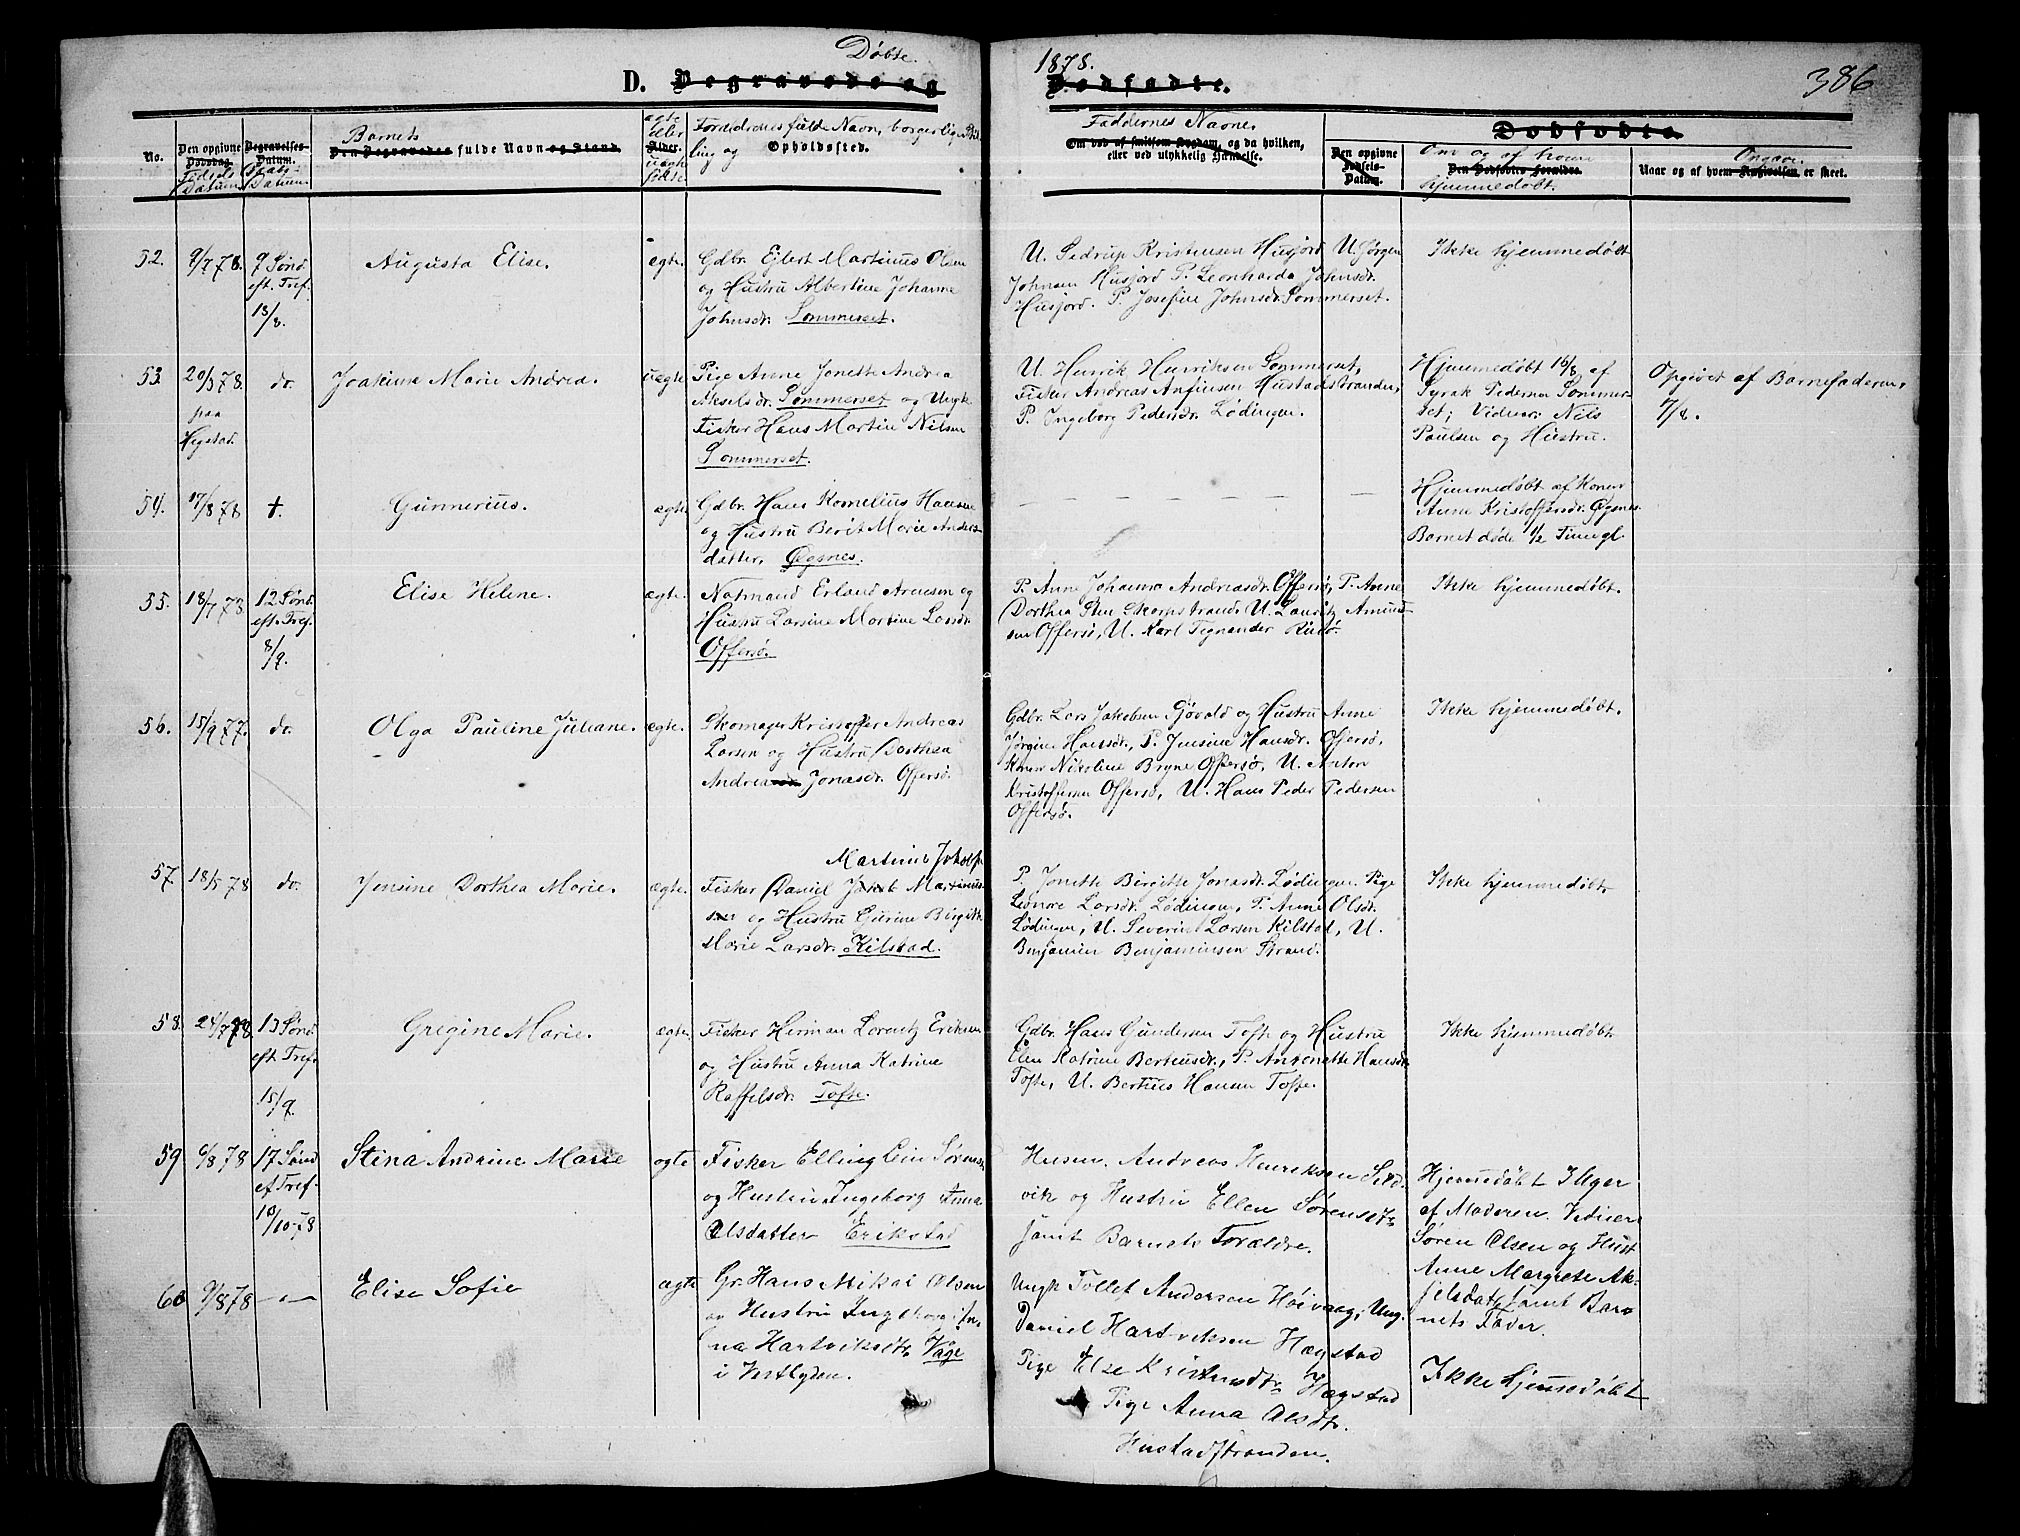 Døbte. 1878.
D. Begravede og Dødfødte. 386
No.
Den opgivne Dødsdag. Fødsels Datum
Begravelses-Datum. Daabs-Datum.
Barnets
Den Begravedes fulde Navn og Stand.
ægte eller Alder. uægte født
Forældrenes fulde Navn, borgerlige Stilling og Opholdssted.
Faddernes Navne.
Om død af smitsom Sygdom, og da hvilken, eller ved ulykkelig Hændelse.
Dødfødte
Den opgivne Fødsels-Datum.
Om og af hvem
Den Dødfødtes Forældre.
hjemmedøbt.
Naar og af hvem Angivelsen er skeet.
52. 9/7 78. 9 Sønd. eft. Tref. 18/8. Augusta Elise. ægte.
Gdbr. Ejlert Martinus Olsen
og Hustru Albertine Johanne
Johnsdr. Sommerset.
U. Sedrup Kristensen Husjord U. Jørgen
Johnsen Husjord P. Leonharda Johnsdr.
Husjord. P. Josefine Johnsdr. Sommerset.
Ikke hjemmedøbt
53. 20/3 78. paa Hegstad. do. Joakima Marie Andrea. uægte
Pige Anne Jonette Andrea
Akselsdr. Sommerset og Ungk.
Fisker Hans Martin Nilsen
Sommerset.
U. Henrik Henriksen Sommerset,
Fisker Andreas Anfinsen Hustadstranden,
P. Ingeborg Pedersdr. Lødingen.
Hjemmedøbt 16/8 af
Syrak Pedersen Sommer-
set; Vidner: Nils
Paulsen og Hustru.
Opgivet af Barnefaderen,
7/8.
54. 17/8 78 +. Gunnerius. ægte.
Gdbr. Hans Kornelius Hansen
og Hustru Berit Marie Anders-
datter, Øgsnes.
— — — — — —
Hjemmedøbt af Konen
Anne Kristoffersdr. Øgsnes.
Barnet døde 1/2 Time gl.
55. 18/7 78 12 Sønd. eft. Tref. 8/9. Elise Helene. ægte.
Notmand Erland Arnesen og
Hustru Larsine Martine Larsdr.
Offersø.
P. Anne Johanna Andreasdr. Offersø, P. Anne
Dorthea Sten Skarpstrand, U. Lauritz Amund-
sen Offersø, U. Karl Tignander Risø.
Ikke hjemmedøbt.
56. 15/9 77. do. Olga Pauline Juliane. ægte.
Skomager Kristoffer Andreas
Larsen og Hustru Dorthea
Andrea Jonasdr. Offersø.
Gdbr. Lars Jakobsen Sjøvold og Hustru Anne
Jørgine Hansdr., P. Jensine Hansdr. Offersø,
Konen Nikoline Bryne Offersø, U. Anton
Kristoffersen Offersø, U. Hans Peder Pedersen
Offersø.
Ikke hjemmedøbt.
57. 18/5 78 do. Jensine Dorthea Marie. ægte.
Martinus
Fisker Daniel Jakob Martinus-
sen og Hustru Gurine Birgitte
Marie Larsdr. Kilstad.
P. Jonette Birgitte Jonasdr. Lødingen. Pige
Leonore Larsdr. Lødingen, P. Anne Olsdr.
Lødingen, U. Severin Larsen Kilstad, U.
Benjamin Benjaminsen Strand.
Ikke hjemmedøbt.
58. 24/7 78. 13 Sønd. eft. Tref. 15/9. Gregine Marie. ægte.
Fisker Herman Lorentz Eriksen
og Hustru Anna Katrine
Raffelsdr. Tofte.
Gdbr. Hans Gundersen Tofte og Hustru
Elen Katrine Berteusdr., P. Antonette Hansdr.
Tofte, U. Berteus Hansen Tofte.
Ikke hjemmedøbt.
59 6/8 78 17 Sønd ef Tref. 13/10-78 Stina Andrine Marie ægte
Fisker Elling Sørens
og Hustru Ingeborg Anna
Olsdatter Erikstad
Husm. Andreas Henriksen Sild-
vik og Hustru Ellen Sørensdtr
samt Barnets Forældre.
Hjemmedøbt 3 Uger
af Moderen. Vidner
Søren Olsen og Hust
Anne Margrete Ak-
selsdat, samt Bar-
nets Fader.
60 9/8 78 —"— Elise Sofie ægte
Gr. Hans Mikal Olsen
og Hustru Ingeborg An-
na Hartviksdtr Våge
i Vestbyden.
Ungk Tollef Andersen Hoivaag, Ung.
Daniel Hartviksen Hægstad
Pige Else Kristensdtr Hægstad
Pige Anna Olsdtr.
Hustadstranden.
Ikke hjemmedøbt